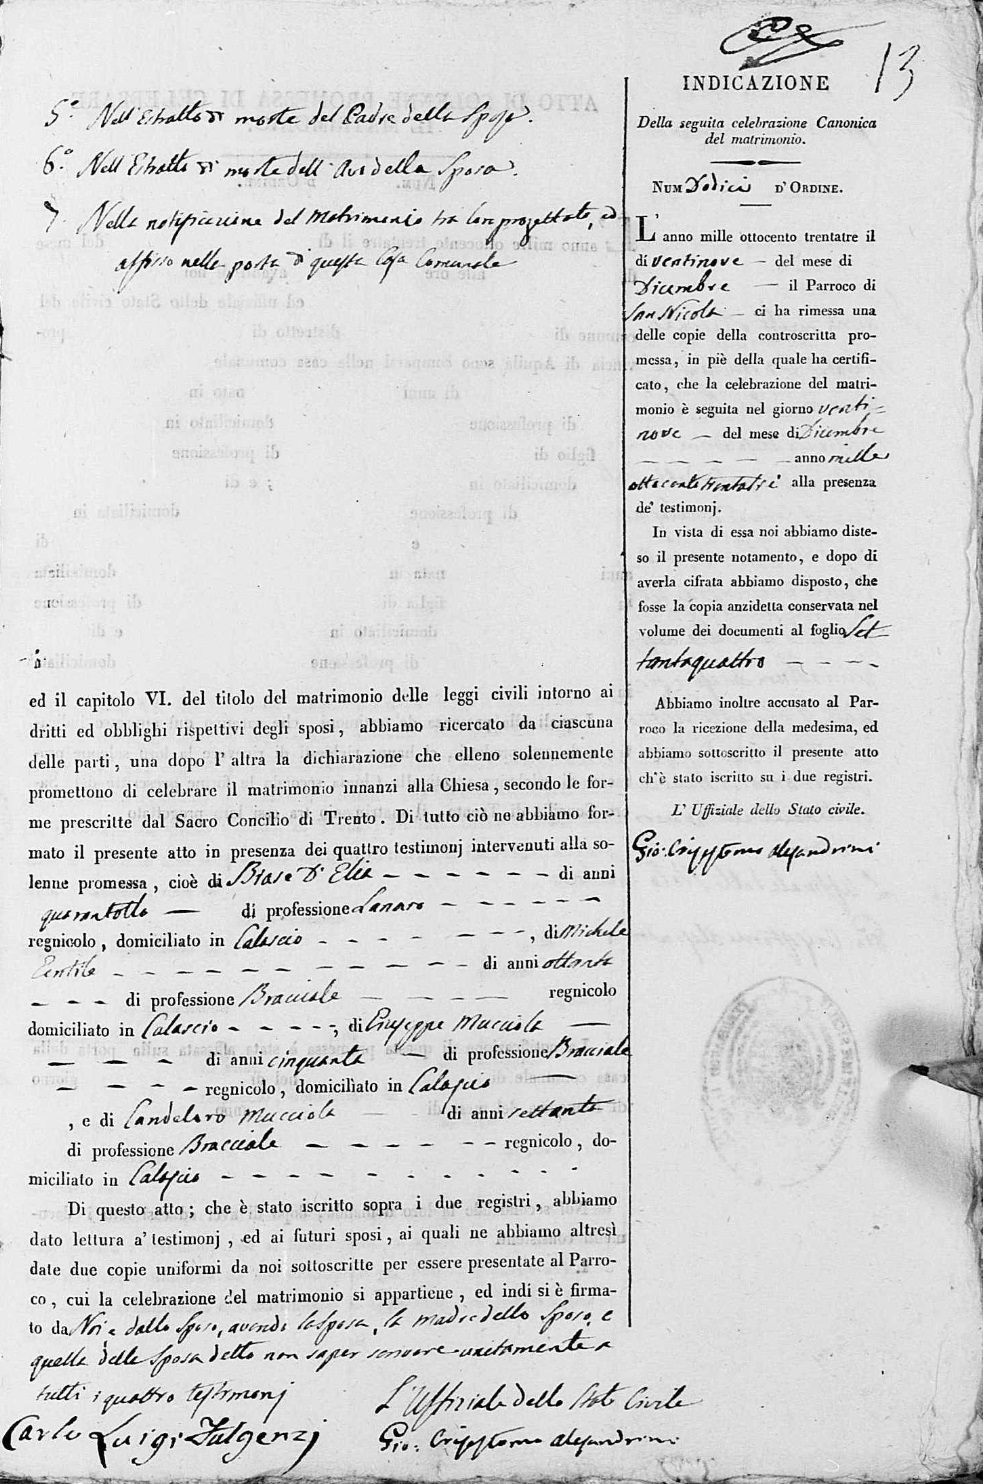 13
5.° Nell'Estratto di morte del Padre della Sposa.
6.° Nell Estratto di morte dell'Avo della Sposa.
7. Nella notificazione del Matrimonio tra loro progettato, ed
affisso nella porta di questa Casa Comunale
ed il capitolo VI. del titolo del matrimonio delle leggi civili intorno ai
dritti ed obblighi rispettivi degli sposi, abbiamo ricercato da ciascuna
delle parti, una dopo l'altra la dichiarazione che elleno solennemente
promettono di celebrare il matrimonio innanzi alla Chiesa, secondo le for-
me prescritte dal Sacro Concilio di Trento. Di tutto ciò ne abbiamo for-
mato il presente atto in presenza dei quattro testimonj intervenuti alla so-
lenne promessa, cioè di Biase D'Elia - - - - - - di anni
quarantotto — di professione Lanaro - - - - - -
regnicolo, domiciliato in Calascio - - - - - -, di Michele
Gentile - - - - - - - - - - di anni ottanta
- - - di professione Bracciale - - - regnicolo
domiciliato in Calascio - - - - -, di Giuseppe Mucciola —
- - - di anni cinquanta — di professione Bracciale
- - - - regnicolo, domiciliato in Calascio —
, e di Candeloro Mucciola — di anni settanta
di professione Bracciale - - - - - - regnicolo, do-
miciliato in Calascio - - - - - - - - - -
Di questo atto; che è stato iscritto sopra i due registri, abbiamo
dato lettura a' testimonj, ed ai futuri sposi, ai quali ne abbiamo altresì
date due copie uniformi da noi sottoscritte per essere presentate al Parro-
co, cui la celebrazione del matrimonio si appartiene, ed indi si è firma-
to da Noi e dallo Sposo, avendo la sposa, la madre dello Sposo, e
quella della Sposa detto non saper scrivere unitamente a
tutti i quattro testimonj
L'Uffiziale dello Stato Civile
Carlo Luigi Fulgenzj
Gio: Crisostomo Alesandrini
INDICAZIONE
Della seguita celebrazione Canonica
del matrimonio.
NUM Dodici D'ORDINE.
L'anno mille ottocento trentatre il
di ventinove — del mese di
Dicembre — il Parroco di
San Nicola — ci ha rimessa una
delle copie della controscritta pro-
messa, in piè della quale ha certifi-
cato, che la celebrazione del matri-
monio è seguita nel giorno venti=
nove — del mese di Dicembre
- - - - - anno mille
ottocentotrentatrè alla presenza
de' testimonj.
In vista di essa noi abbiamo diste-
so il presente notamento, e dopo di
averla cifrata abbiamo disposto, che
fosse la copia anzidetta conservata nel
volume dei documenti al foglio Set
tantaquattro - - - -
Abbiamo inoltre accusato al Par-
roco la ricezione della medesima, ed
abbiamo sottoscritto il presente atto
ch'è stato iscritto su i due registri.
L'Uffiziale dello Stato civile.
Gio: Crisostomo Alesandrini